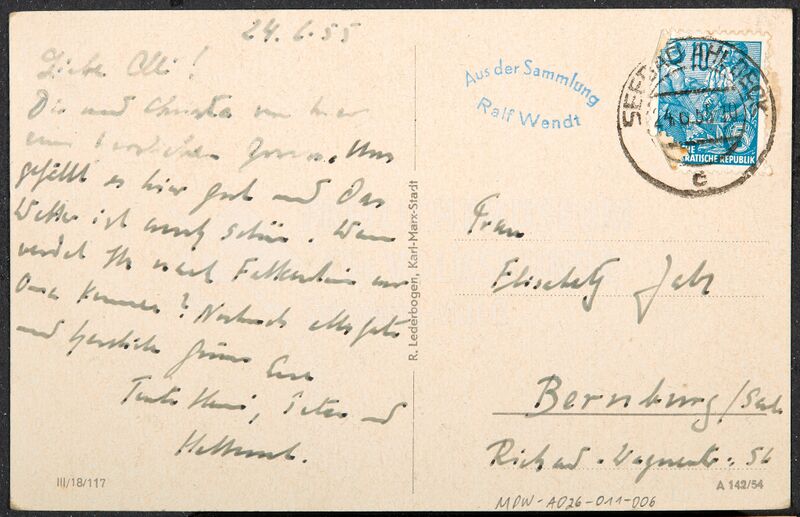 24.6.55
Liebe Elli!
Dir und Christa von hier
einen herzlichen Gruss. Uns
gefällt es hier gut und das
Wetter ist auch schön. Wann
werdet Ihr nach Falkenstein zur
Oma kommen? Nochmals alles gute
und herzliche Grüsse Eure
Tante Hanni, Peter und
Hellmut.
III/18/117
R. Lederbogen, Karl-Marx-Stadt
Aus der Sammlung
Ralf Wendt
SEEBAD AHLBECK
24.6.55
C
5
DEUTSCHE
DEMOKRATISCHE REPUBLIK
Frau
Elisabeth
Bernburg/Saale
Richard-Wagnerstr. 56
A 142/54
MDW-A026-011-006